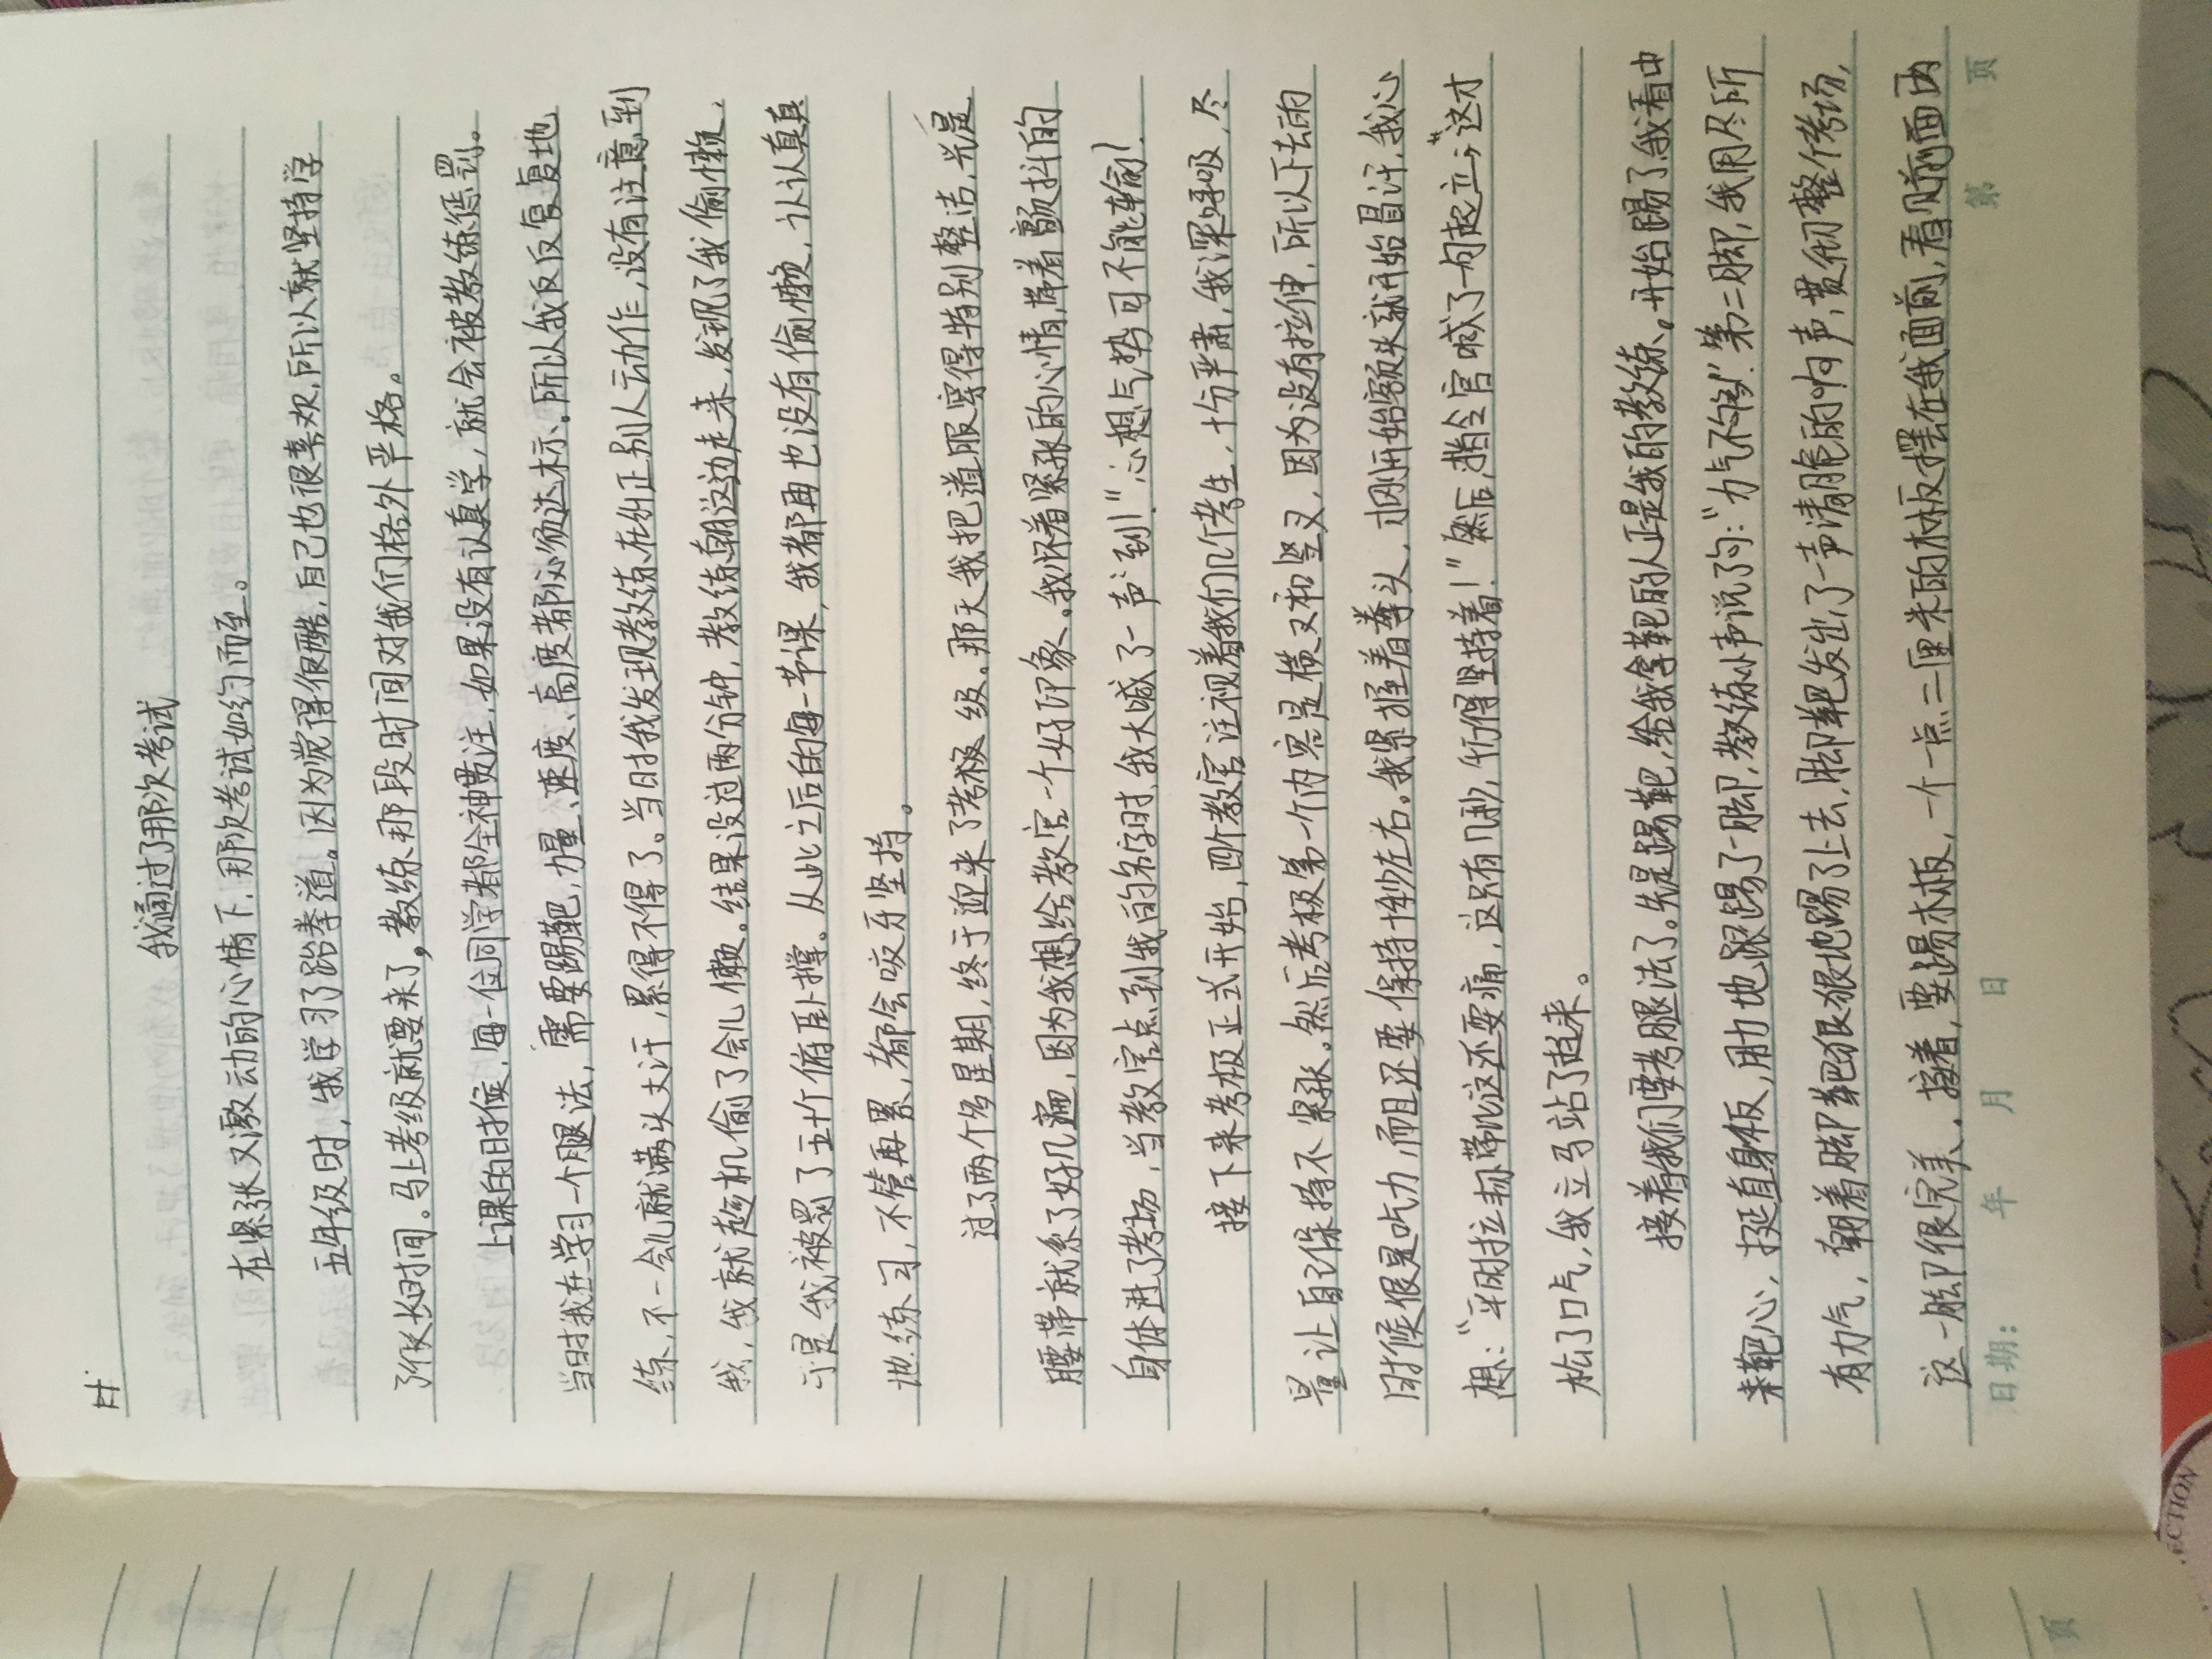 我通过了那次考试
在紧张又激动的心情下,那次考试如约而至。
五年级时,我学习了跆拳道。因为觉得很酷,自己也很喜欢,所以就坚持学
了很长时间。马上考级就要来了,教练那段时间对我们格外严格。
上课的时候,每一位同学都全神贯注,如果没有认真学,就会被教练惩罚。
当时我在学习一个腿法,需要踢靶,力量、速度、高度都必须达标。所以我反反复复地
练,不一会儿就满头大汗,累得不得了。当时我发现教练在纠正别人动作,没有注意到
我,我就趁机偷了会儿懒。结果没过两分钟,教练朝这边走来,发现了我偷懒,
于是我被罚了五十个俯卧撑。从此之后的每一节课,我都再也没有偷懒,认认真真
地练习,不管再累,都会咬牙坚持。
过了两个多星期,终于迎来了考极级。那天我把道服穿得特别整洁,光是
腰带就系了好几遍,因为我想给教官一个好印象。我怀着紧张的心情,带着颤抖的
身体进了考场,当教官点到我的名字时,我大喊了一声“到!”心想气势可不能输!
接下来考极正式开始,四个教官注视着我们几个考生,十分严肃,我深呼吸,尽
量让自己保持不紧张。然后考极第一个内容是横叉和竖叉,因为没有拉伸,所以下去的
时候很是吃力,而且还要保持十秒左右。我紧握着拳头,刚开始额头就开始冒汗,我心
想:“平时拉韧带比这还要痛,这只有几秒,你得坚持着!”然后,指令官喊了一句“起立”,这才
松了口气,我立马站了起来。
接着我们要考腿法了。先是踢靶,给我拿靶的人正是我的教练。开始踢了,我看中
来靶心,挺直身板,用力地踢了一脚,教练小声说了句:“力气不够!”第二脚,我用尽所
有力气,朝着脚靶狠狠地踢了上去,脚靶发出了一声清脆的响声,贯彻整个考场,
这一脚很完美。接着,要踢木板,一个一点二厘米的木板摆在我面前,看见前面两
日期: 年 月 日 第 页
页